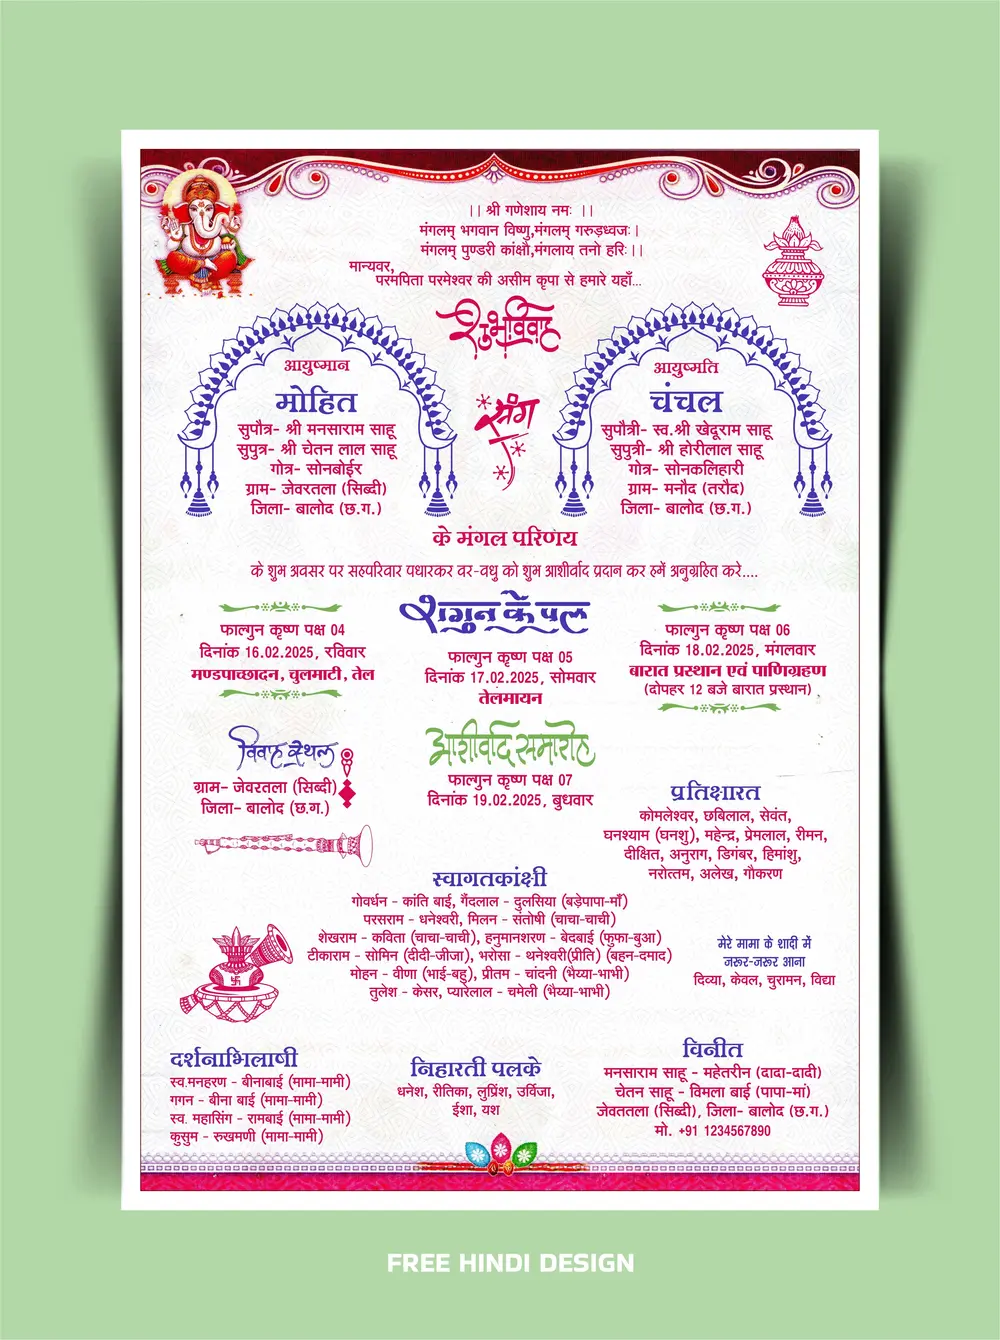 ।। श्री गणेशाय नमः ।।
मंगलम् भगवान विष्णु,मंगलम् गरुड़ध्वजः।
मंगलम् पुण्डरी कांक्षौ,मंगलाय तनो हरिः।।
मान्यवर,
परमपिता परमेश्वर की असीम कृपा से हमारे यहाँ...
शुभ विवाह
आयुष्मान
मोहित
सुपौत्र- श्री मनसाराम साहू
सुपुत्र- श्री चेतन लाल साहू
गोत्र- सोनबोईर
ग्राम- जेवरतला (सिब्दी)
जिला- बालोद (छ.ग.)
संग
आयुष्मति
चंचल
सुपौत्री- स्व.श्री खेदूराम साहू
सुपुत्री- श्री होरीलाल साहू
गोत्र- सोनकलिहारी
ग्राम- मनौद (तरौद)
जिला- बालोद (छ.ग.)
के मंगल परिणय
के शुभ अवसर पर सहपरिवार पधारकर वर-वधु को शुभ आशीर्वाद प्रदान कर हमें अनुग्रहित करे....
फाल्गुन कृष्ण पक्ष 04
दिनांक 16.02.2025, रविवार
मण्डपाच्छादन, चुलमाटी, तेल
शगुन के पल
फाल्गुन कृष्ण पक्ष 05
दिनांक 17.02.2025, सोमवार
तेलमायन
फाल्गुन कृष्ण पक्ष 06
दिनांक 18.02.2025, मंगलवार
बारात प्रस्थान एवं पाणिग्रहण
(दोपहर 12 बजे बारात प्रस्थान)
विवाह स्थल
ग्राम- जेवरतला (सिब्दी)
जिला- बालोद (छ.ग.)
आशीर्वाद समारोह
फाल्गुन कृष्ण पक्ष 07
दिनांक 19.02.2025, बुधवार
प्रतिक्षारत
कोमलेश्वर, छबिलाल, सेवंत,
घनश्याम (घनशु), महेन्द्र, प्रेमलाल, रीमन,
दीक्षित, अनुराग, डिगंबर, हिमांशु,
नरोत्तम, अलेख, गौकरण
स्वागतकांक्षी
गोवर्धन - कांति बाई, गैंदलाल - दुलसिया (बड़ेपापा-माँ)
परसराम - धनेश्वरी, मिलन - संतोषी (चाचा-चाची)
शेखराम - कविता (चाचा-चाची), हनुमानशरण - बेदबाई (फुफा-बुआ)
टीकाराम - सोमिन (दीदी-जीजा), भरोसा - थनेश्वरी(प्रीति) (बहन-दमाद)
मोहन - वीणा (भाई-बहु), प्रीतम - चांदनी (भैय्या-भाभी)
तुलेश - केसर, प्यारेलाल - चमेली (भैय्या-भाभी)
मेरे मामा के शादी में
जरूर-जरूर आना
दिव्या, केवल, चुरामन, विद्या
दर्शनाभिलाषी
स्व.मनहरण - बीनाबाई (मामा-मामी)
गगन - बीना बाई (मामा-मामी)
स्व. महासिंग - रामबाई (मामा-मामी)
कुसुम - रुखमणी (मामा-मामी)
निहारती पलके
धनेश, रीतिका, लुप्रिंश, उर्विजा,
ईशा, यश
विनीत
मनसाराम साहू - महेतरीन (दादा-दादी)
चेतन साहू - विमला बाई (पापा-मां)
जेवततला (सिब्दी), जिला- बालोद (छ.ग.)
मो. +91 1234567890
FREE HINDI DESIGN